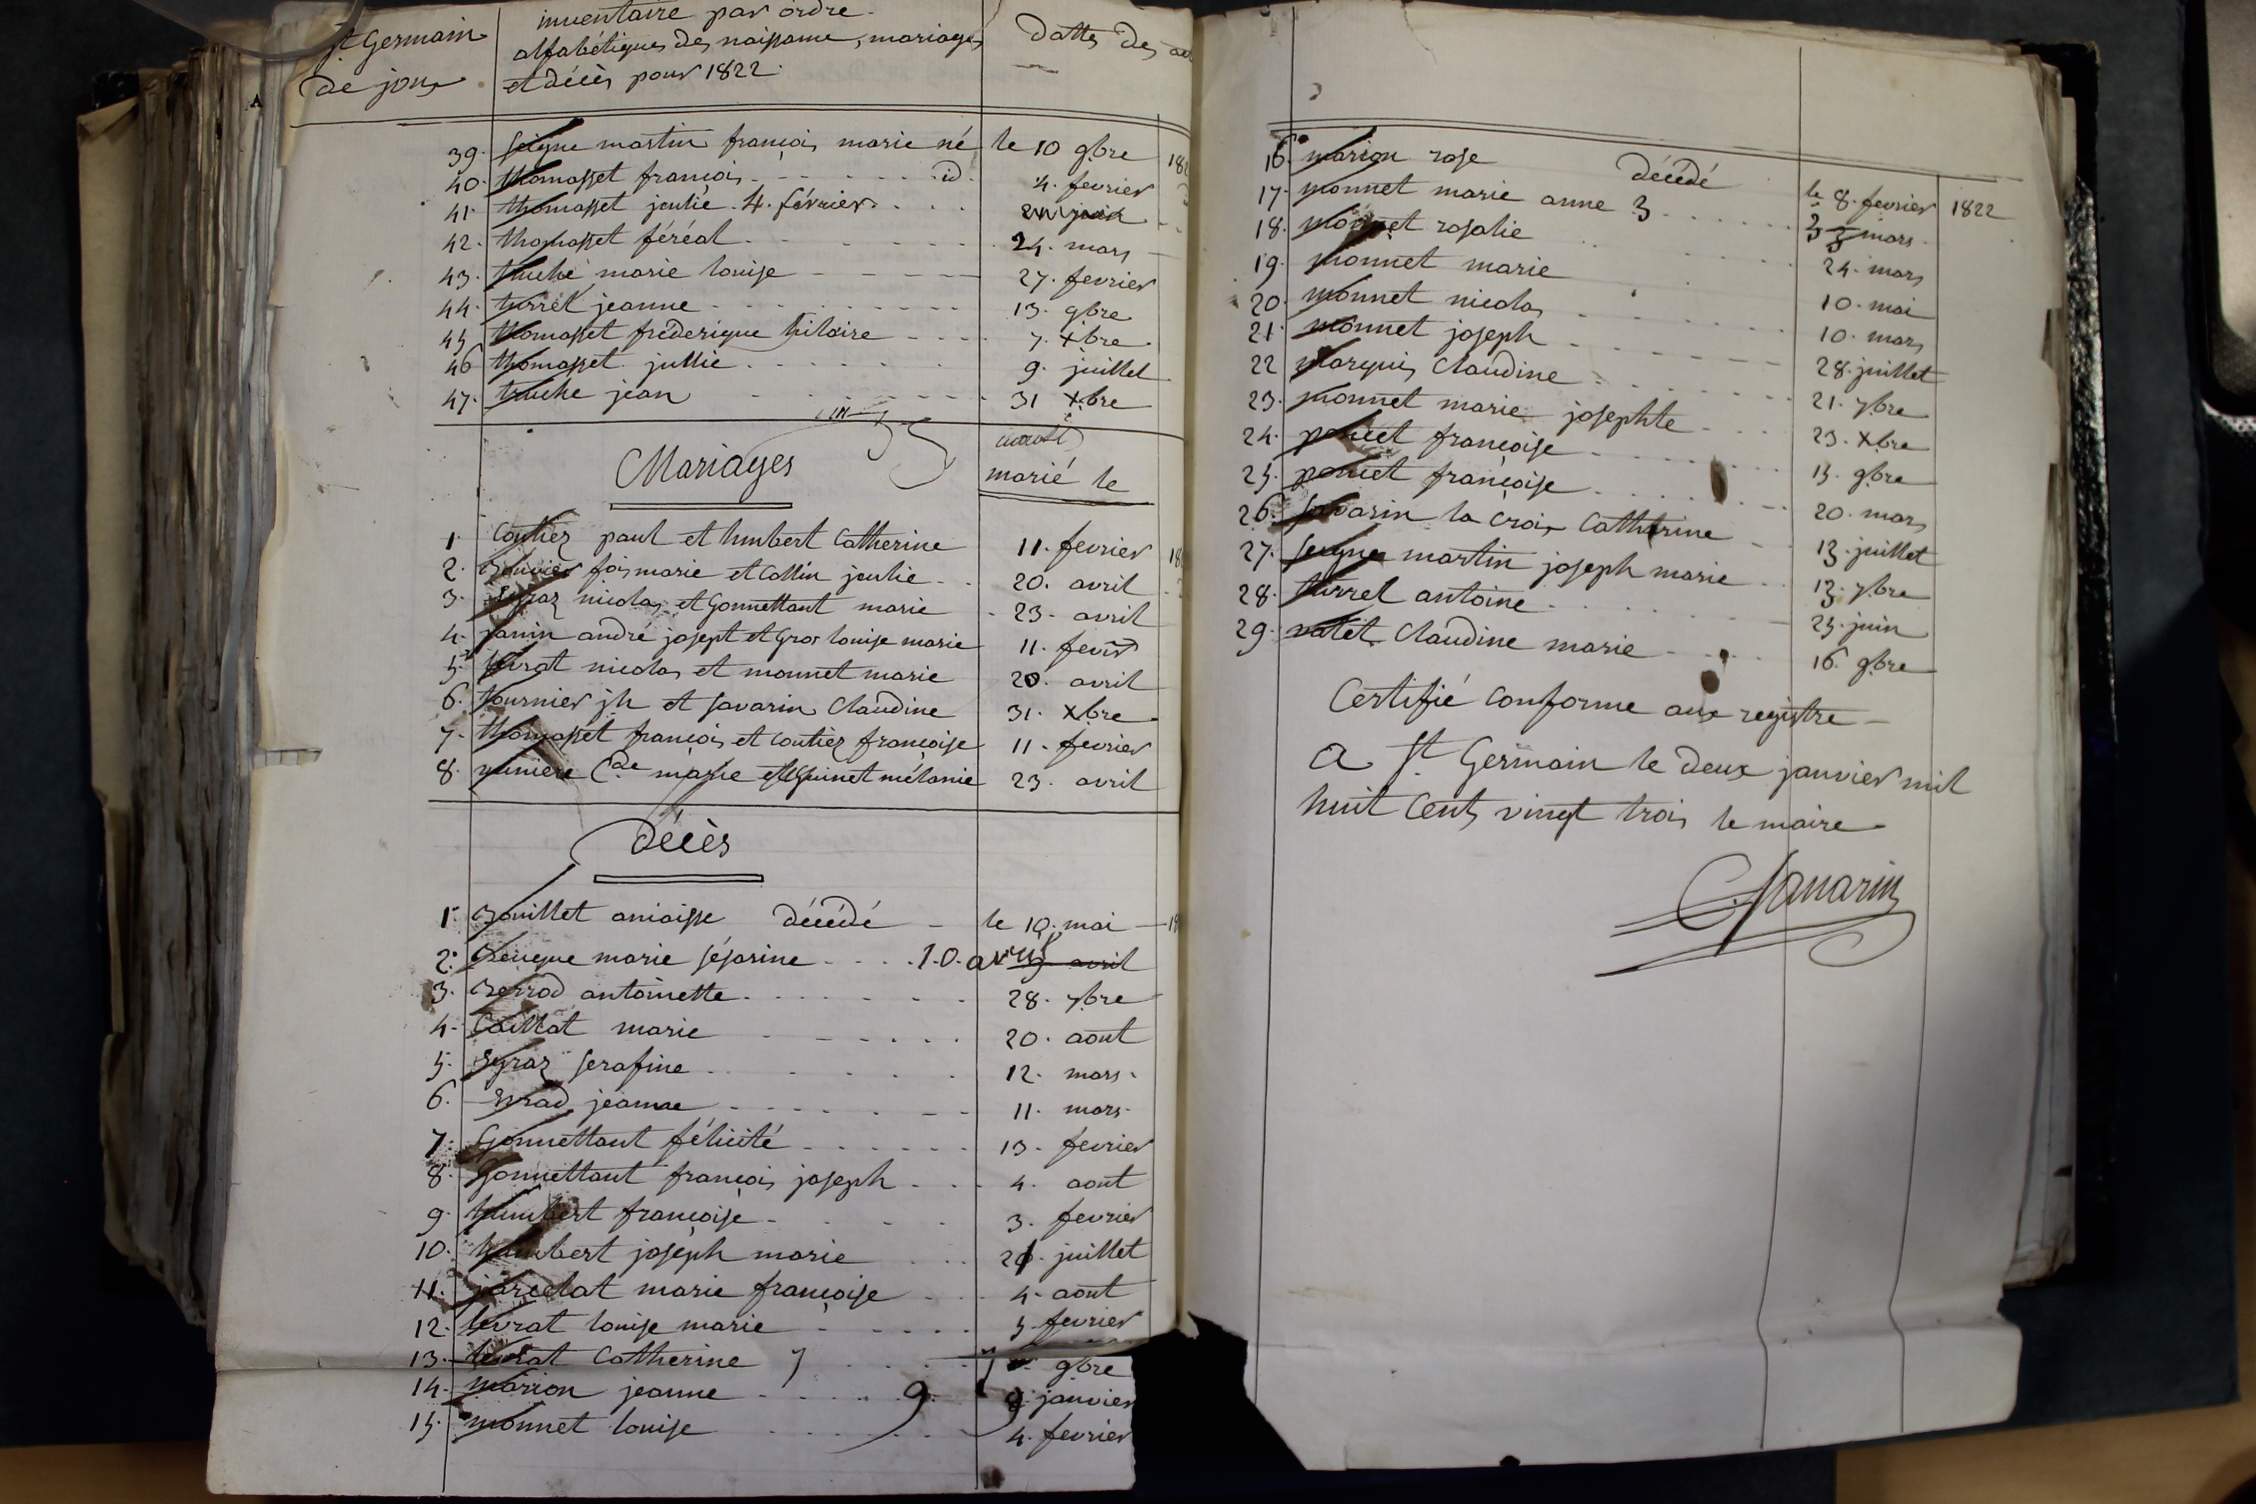 St Germain
de joux
inventaire par ordre
alfabétiques des naissance, mariages
et décès pour 1822.
dattes des
39. Seigne martin françois marie né le 10 9bre 182
40. thomasset francois id. 4. fevrier
41. thomasset joulie. 4. février.
42. thomasset féréol 24. mars
43. truche marie louise 27. fevrier
44. turrel jeanne 13. 9bre
45 thomasset fréderique hilaire 7. xbre
46 thomasset jullie 9. juillet
47. truche jean 31 xbre
Mariages
marié le
1. Coutiez paul et humbert Catherine 11. fevrier 18
2. Bouvier fois marie et Collin joulie 20. avril
3. Egraz nicolas et Gonnettant marie 23. avril
4. janin andré josept et Gros louise marie 11. fevir
5. levrat nicolas et monnet marie 20. avril
6. tournier jh et savarin Claudine 31. xbre
7. thomasset francois et coutiez françoise 11. fevrier
8. muniere Cde marie et seguinet mélanie 23. avril
Décès
1. Bouillet aniaisse décédé le 10. mai 18
2. marie séjarine 10. avril avril
3. Berrod antoinette 28. 7bre
4. Caillat marie 20. aout
5. Egraz serafine 12. mars.
6. Evrad jeanne 11. mars.
7. Gonnettant félicité 13. fevrier
8. Gonnettant françois joseph 4. aout
9. humbert françoise 3. fevrier
10. humbert joseph marie 21. juillet
11. jarclat marie françoise 4. aout
12. levrat louise marie 5 fevrier
13. levrat Catherine 7 7 9bre
14. marion jeanne 9. 9 janvier
15. monnet louise 4. fevrier
16. marion rose décédé le 8. fevrier 1822
17. monnet marie anne 3 3 mars
18. monnet rosalie 24. mars
19. monnet marie 10. mai
20. monnet nicolas 10. mars
21. monnet joseph 28. juillet
22 marquis Claudine 21. 7bre
23. monnet marie josephte 23. xbre
24. poncet françoise 15. 9bre
25. poncet françoise 20. mars
26. savarin la croix Catherine 13. juillet
27. seigne martin joseph marie 13. 7bre
28. turrel antoine 25. juin
29. vatet Claudine marie 16. 9bre
Certifié conforme aux registre
a St Germain le deux janvier mil
huit cents vingt trois le maire
Savarin